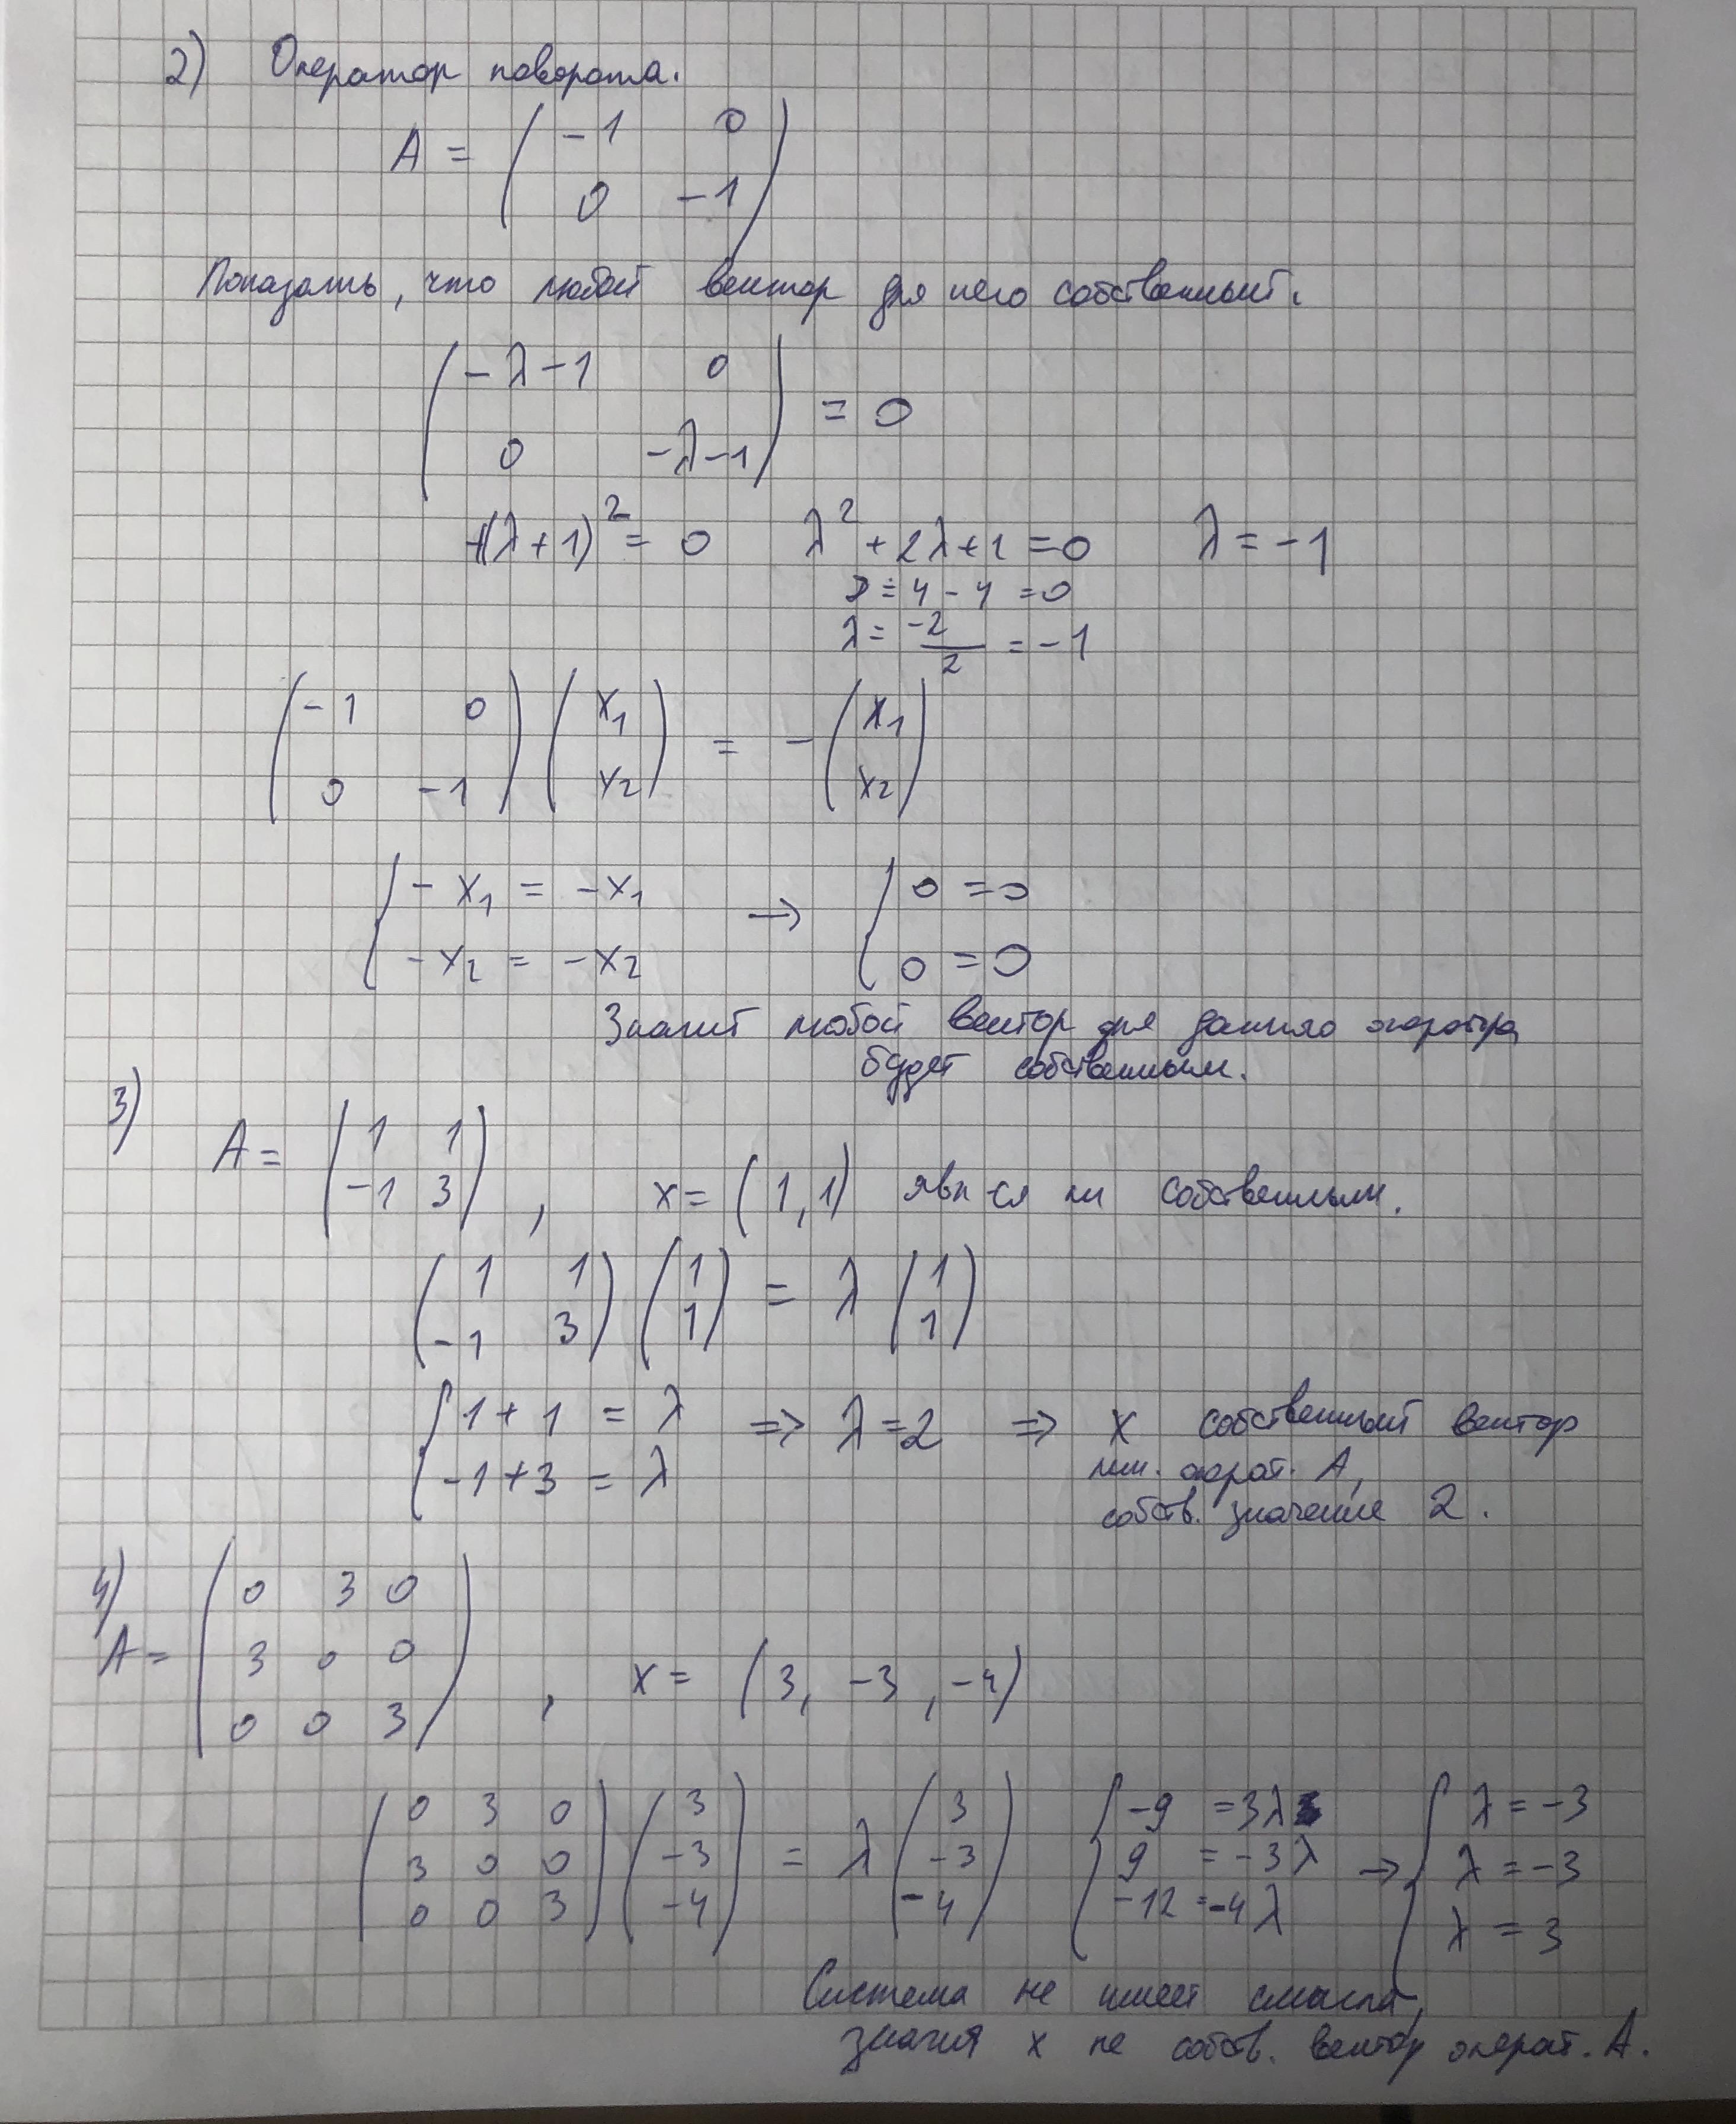 2) Оператор поворота.
A = ( -1 0
0 -1 )
Показать, что любой вектор для него собственный.
( -λ-1 0
0 -λ-1 ) = 0
(λ+1)² = 0 λ² + 2λ + 1 = 0 λ = -1
D = 4 - 4 = 0
λ = -2/2 = -1
( -1 0
0 -1 ) ( x₁
x₂ ) = - ( x₁
x₂ )
{ - x₁ = - x₁
- x₂ = - x₂ → { 0 = 0
0 = 0
Значит любой вектор для данного оператора
будет собственным.
3)
A = ( 1 1
-1 3 ) , x = (1, 1) явл-ся ли собственным.
( 1 1
-1 3 ) ( 1
1 ) = λ ( 1
1 )
{ 1 + 1 = λ
-1 + 3 = λ => λ = 2 => x собственный вектор
лин. операт. A,
собств. значение 2.
4)
A = ( 0 3 0
3 0 0
0 0 3 ) , x = (3, -3, -4)
( 0 3 0
3 0 0
0 0 3 ) ( 3
-3
-4 ) = λ ( 3
-3
-4 ) { -9 = 3λ
9 = -3λ
-12 = -4λ → { λ = -3
λ = -3
λ = 3
Система не имеет смысла,
x не собств. вектор операт. A.